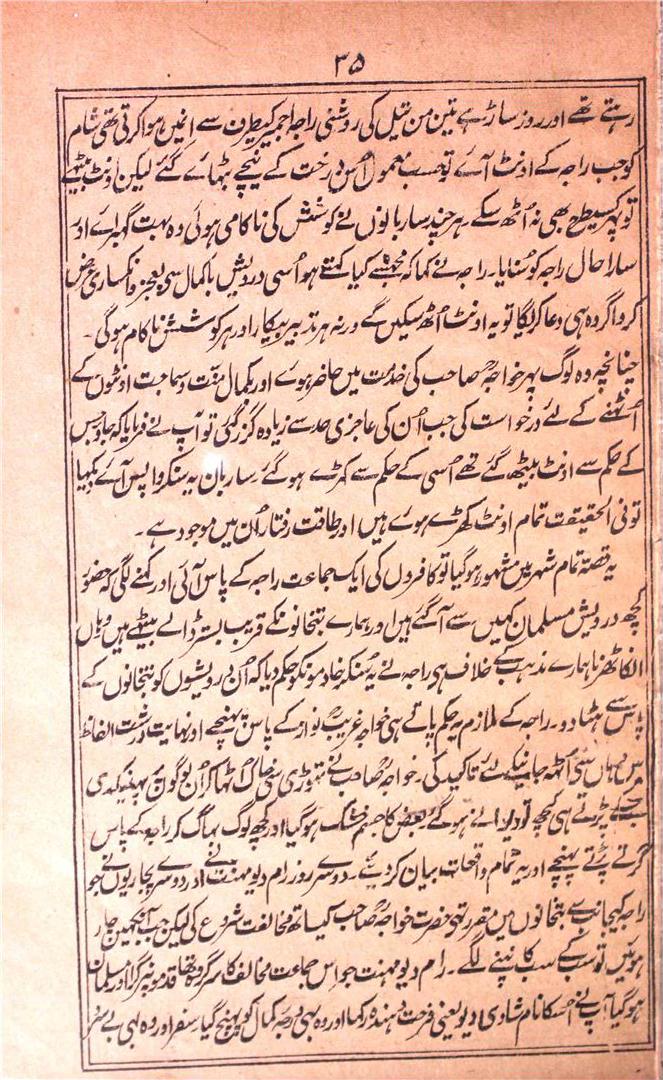 ۳۵
رہتے تھے اور روز ساڑہے تین من تیل کی روشنی راجہ اجمیر کیطرف سے انمیں ہوا کرتی تھی شام
کو جب راجہ کے اونٹ آئے تو حسب معمول اُس درخت کے نیچے بٹھائے گئے لیکن اونٹ بیٹھے
تو پھر کسیطرح بھی نہ اُٹھ سکے۔ ہر چند ساربانوں نے کوشش کی ناکامی ہوئی وہ بہت گھبرائے اور
سارا حال راجہ کو سُنایا۔ راجہ نے کہا کہ مجھسے کیا کہتے ہو اُسی درویش باکمال سے بعجز و انکساری عرض
کرو اگر وہ ہی دعا کریگا تو یہ اونٹ اُٹھ سکیں گے ورنہ ہر تدبیر بیکار اور ہر کوشش ناکام ہوگی۔
چنانچہ وہ لوگ پہر خواجہؒ صاحب کی خدمت میں حاضر ہوئے اور بکمال منّت و سماجت اونٹوں کے
اُٹھنے کے لئے درخواست کی جب اُن کی عاجزی حد سے زیادہ گزر گئی تو آپ نے فرمایا کہ جاؤ جس
کے حکم سے اونٹ بیٹھ گئے تھے اُسی کے حکم سے کھڑے ہو گئے۔ ساربان یہ سنکر واپس آئے دیکھا
تو فی الحقیقت تمام اونٹ کھڑے ہوئے ہیں اور طاقت رفتار اُن میں موجود ہے۔
یہ قصّہ تمام شہر میں مشہور ہو گیا تو کافروں کی ایک جماعت راجہ کے پاس آئی اور کہنے لگی کہ حضور
کچھ درویش مسلمان کہیں سے آگئے ہیں اور ہمارے بتخانونکے قریب بستر ڈالے بیٹھے ہیں وہاں
انکا ٹھرنا ہمارے مذہب کے خلاف ہی راجہ نے یہ سُنکر خادمونکو حکم دیا کہ اُن درویشوں کو بتخانوں کے
پاس سے ہٹا دو۔ راجہ کے ملازم یہ حکم پاتے ہی خواجہ غریبؒ نواز کے پاس پہنچے اور نہایت درشت الفاظ
میں وہاں سے اُٹھ جانیکے لئے تاکید کی۔ خواجہؒ صاحب نے تہوڑی سی خاک اُٹھا کر اُن لوگوں پر پھینکدی
جسکے پڑتے ہی کچھ تو دیوانے ہو گئے بعض کا جسم خشک ہو گیا اور کچھ لوگ بھاگ کر راجہ کے پاس
گرتے پڑتے پہنچے اور یہ تمام واقعات بیان کر دیئے۔ دوسرے روز رام دیو مہنت نے اور دوسرے پجاریوں نے جو
راجہ کیجانب سے بتخانوں میں مقرر تھی حضرت خواجہؒ صاحب کیساتھ مخالفت شروع کی لیکن جب آنکھیں چار
ہوئیں تو سب کے سب کانپنے لگے۔ رام دیو مہنت جو اس جماعت مخالف کا سرگروہ تھا قدمونپر گرا اور مسلمان
ہو گیا آپ نے اُسکا نام شادی دیو یعنی فرحت دہندہ رکھا اور وہ بھی درجہ کمال کو پہنچ گیا سفر اور وہ بھی بے سفر